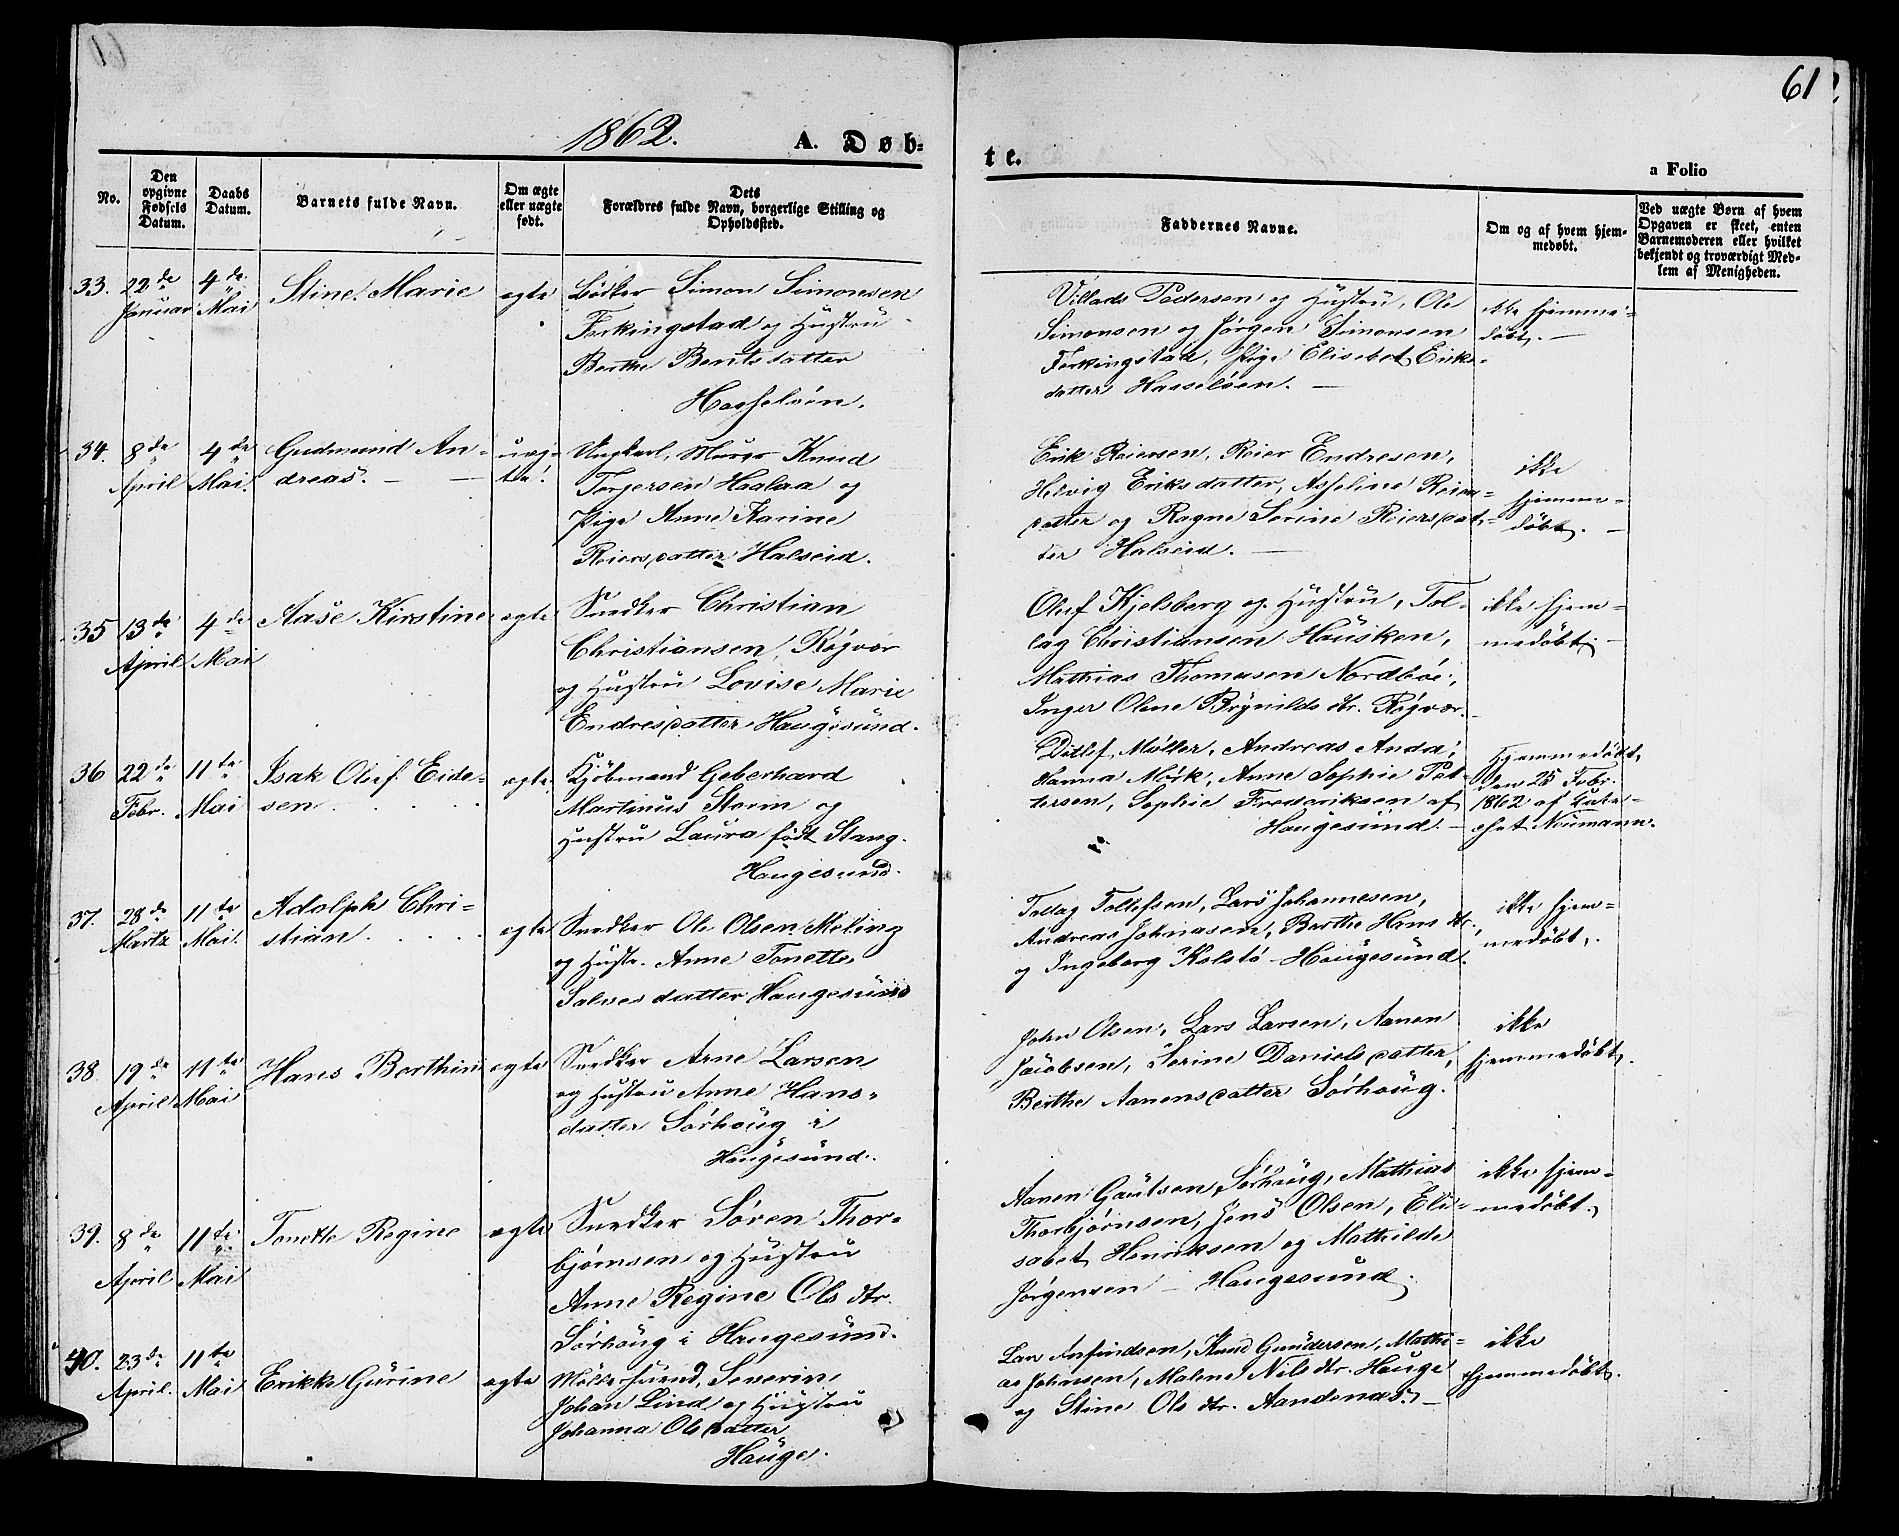 61
1862.
A. Døb-
te.
a Folio
No.
Den opgivne Fødsels Datum.
Daabs Datum.
Barnets fulde Navn.
Om ægte eller uægte født.
Dets Forældres fulde Navn, borgerlige Stilling og Opholdssted.
Faddernes Navne.
Om og af hvem hjem-medøbt.
Ved uægte Børn af hvem Opgaven er skeet, enten Barnemoderen eller hvilket bekjendt og troværdigt Med-lem af Menigheden.
33. 22de Januar 4de Mai Stine Marie ægte
Bödker Simon Simonsen
Ferkingstad og Hustru
Berthe Bentsdatter
Hasselöen.
Villads Pedersen og Hustru, Ole
Simonsen og Jørgen Simonsen
Ferkingstad, Pige Elisebet Eriks-
datter Hasselöen. —
ikke hjemme-
døbt. —
34. 8de April 4de Mai. Gudmund An-
dreas. — — uæg-
te.
Ungkarl, Murer Knud
Torjersen Haalaa og
Pige Anne Karine
Reiersdatter Halseid.
Erik Reiersen, Reier Endresen,
Helvig Eriksdatter, Asseline Reiers-
datter og Ragne Serine Reiersdat-
ter Halseid. —
ikke
hjemme-
døbt. —
35 13de April 4de Mai Aase Kirstine ægte
Snedker Christian
Christiansen Røgvær
og Hustru Lovise Marie
Endresdatter Haugesund.
Oluf Kjelsberg og Hustru, Tol-
lag Christiansen Hausken,
Mathias Thomasen Nordböe,
Inger Olene Brynilds dtr. Røgvær.
ikke hjem-
medøbt. —
36 22de Febr. 11te Mai Isak Oluf Eide-
sen . . . . ægte
Kjöbmand Geberhard
Martinus Storm og
Hustru Laura født Stang.
Haugesund.
Ditlef Møller, Andreas Anda,
Hanna Mørk, Anne Sophie Pet-
tersen, Sophie Frederiksen af
Haugesund. —
Hjemmedøbt,
den 25 Febr.
1862 af Kate-
chet Neumann.
37. 28de Martz 11te Mai. Adolph Chri-
stian . . . . ægte
Snedker Ole Olsen Meling
og Hustr. Anne Tonette
Salvesdatter Haugesund
Tollag Tollefsen, Lars Johannesen,
Andreas Johnasen, Berthe Hans dtr.,
og Ingeborg Kolstø Haugesund.
ikke hjem-
medøbt.
38. 19de April 11te Mai Hans Berthin ægte
Snedker Arne Larsen
og Hustru Anne Hans-
datter Sørhoug i
Haugesund.
John Olsen, Lars Larsen, Aanen
Jacobsen, Serine Danielsdatter,
Berthe Aanensdatter Sørhoug.
ikke
hjemmedøbt.
39. 8de April 11te Mai Tonette Regine ægte
Snedker Søren Thor-
bjørnsen og Hustru
Anne Regine Ols dtr.
Sørhoug i Haugesund.
Aanen Gautsen Sørhoug, Mathias
Thorbjørnsen, Jens Olsen, Eli-
sabet Henriksen og Mathilde
Jørgensen — Haugesund.
ikke hjem-
medøbt.
40. 23de April. 11te Mai Erikke Gurine ægte
Møllersvend, Severin
Johan Lind og Hustru
Johanna Olsdatter
Hauge.
Lars Anfindsen, Knud Gundersen, Mathi-
as Johnsen, Malene Nils dtr. Hauge
og Stine Ols dtr. Aandenæs. —
ikke
hjemmedøbt.